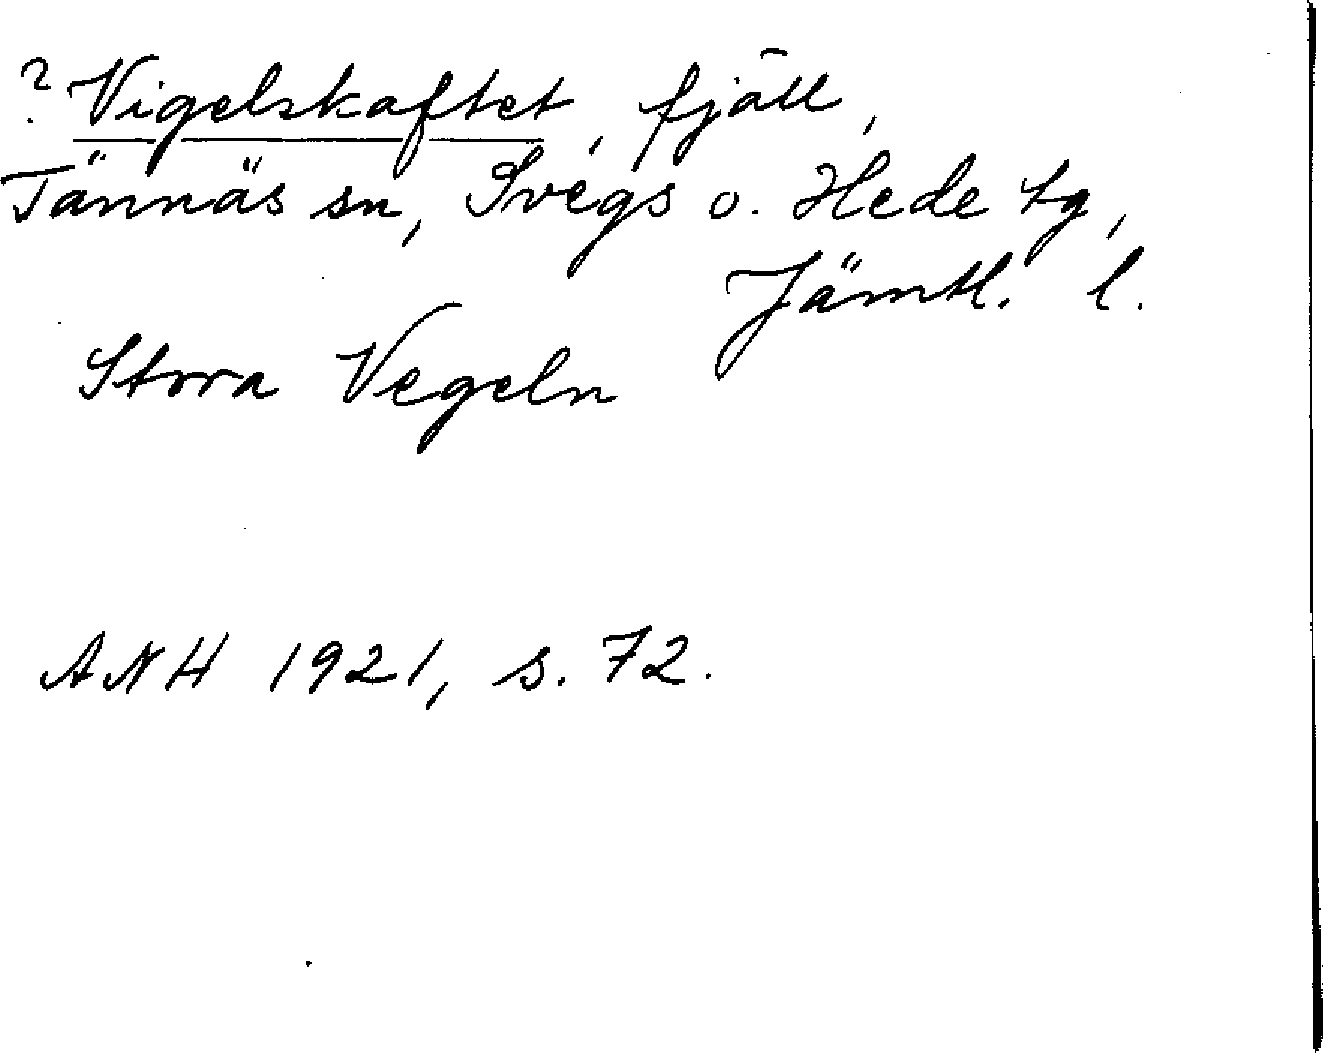 ? Vigelskaftet, fjäll,
Tännäs sn, Svegs o. Hede tg,
Jämtl. l.
Stora Vegeln
ANH 1921, s. 72.